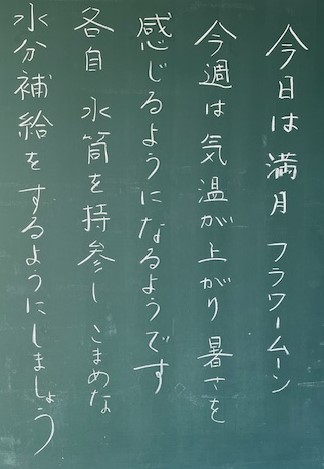 今日は満月 フラワームーン
今週は気温が上がり 暑さを
感じるようになるようです
各自 水筒を持参し こまめな
水分補給をするようにしましょう